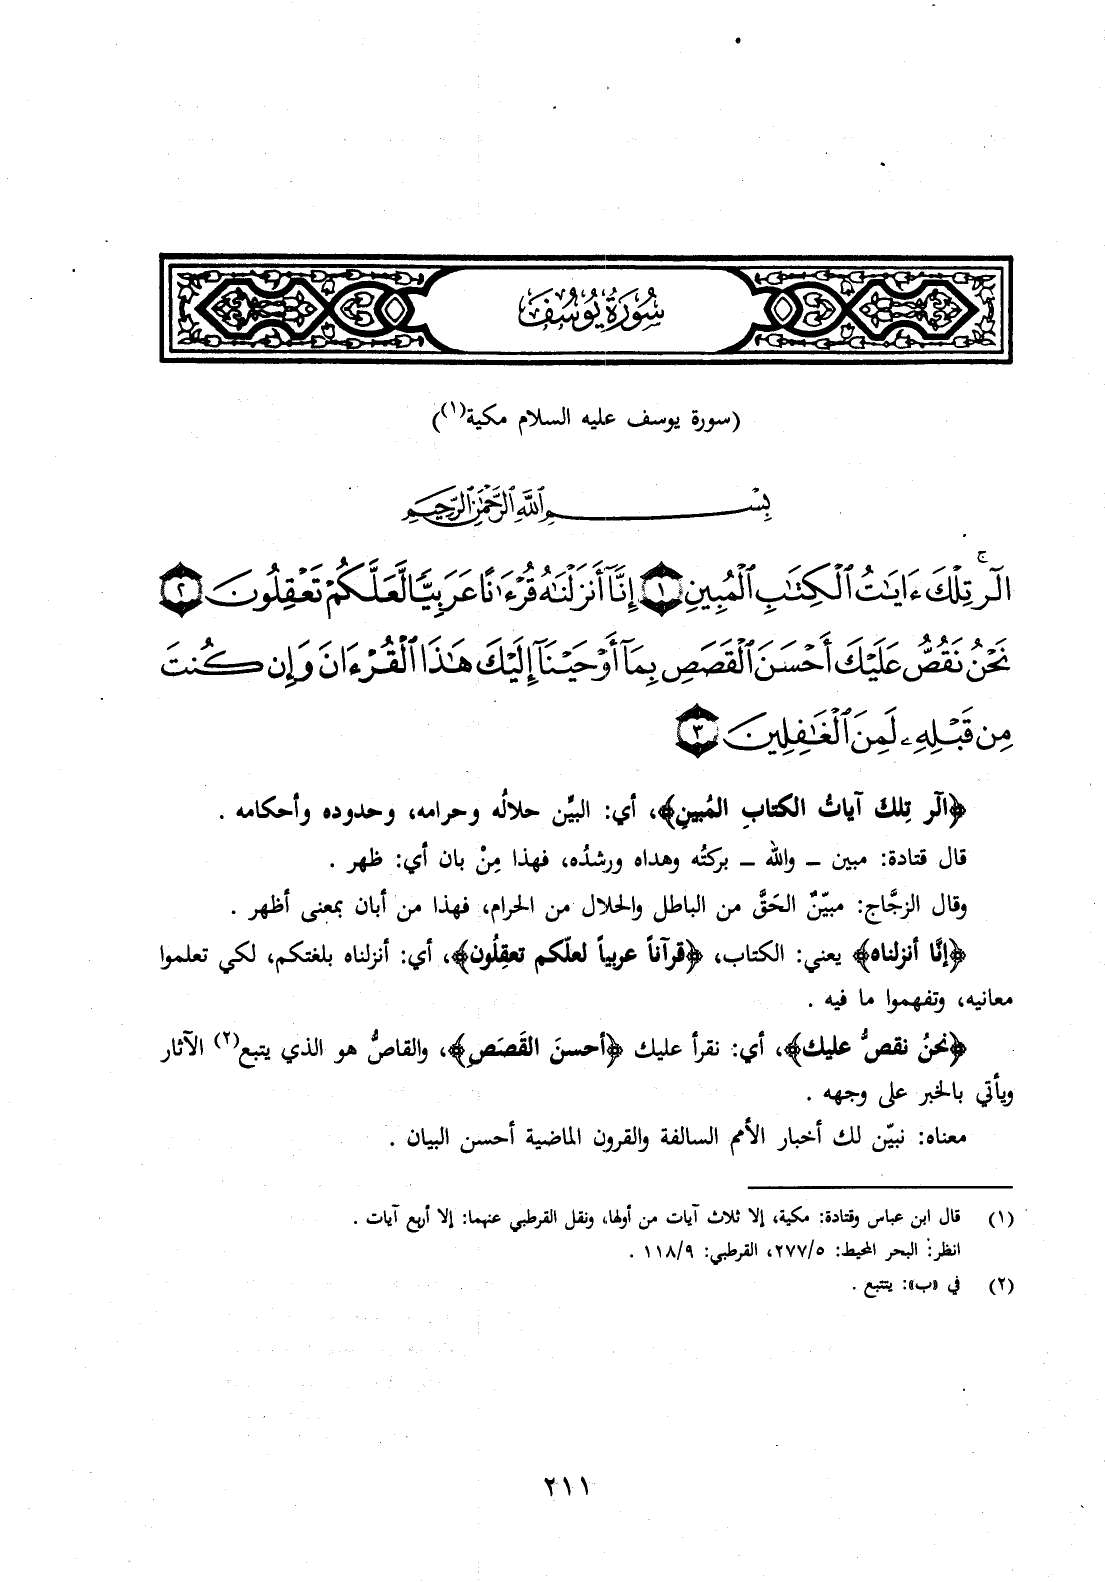 سُورَةُ يُوسُفَ
(سورة يوسف عليه السلام مكية(١))
بِسْمِ ٱللَّهِ ٱلرَّحْمَٰنِ ٱلرَّحِيمِ
الٓرۚ تِلْكَ ءَايَٰتُ ٱلْكِتَٰبِ ٱلْمُبِينِ ١ إِنَّآ أَنزَلْنَٰهُ قُرْءَٰنًا عَرَبِيًّا لَّعَلَّكُمْ تَعْقِلُونَ ٢
نَحْنُ نَقُصُّ عَلَيْكَ أَحْسَنَ ٱلْقَصَصِ بِمَآ أَوْحَيْنَآ إِلَيْكَ هَٰذَا ٱلْقُرْءَانَ وَإِن كُنتَ
مِن قَبْلِهِۦ لَمِنَ ٱلْغَٰفِلِينَ ٣
﴿الٓر تِلكَ آياتُ الكتابِ المُبينِ﴾، أي: البيِّن حلالُه وحرامه، وحدوده وأحكامه .
قال قتادة: مبين ــ والله ــ بركتُه وهداه ورشدُه، فهذا مِنْ بان أي: ظهر .
وقال الزجَّاج: مبيّنٌ الحَقَّ من الباطل والحلال من الحرام، فهذا من أبان بمعنى أظهر .
﴿إنَّا أنزلناه﴾ يعني: الكتاب، ﴿قرآناً عربياً لعلّكم تعقِلُون﴾، أي: أنزلناه بلغتكم، لكي تعلموا
معانيه، وتفهموا ما فيه .
﴿نحنُ نقصُّ عليك﴾، أي: نقرأ عليك ﴿أحسنَ القَصَصِ﴾، والقاصُّ هو الذي يتبع(٢) الآثار
ويأتي بالخبر على وجهه .
معناه: نبيّن لك أخبار الأمم السالفة والقرون الماضية أحسن البيان .
(١) قال ابن عباس وقتادة: مكية، إلا ثلاث آيات من أولها، ونقل القرطبي عنهما: إلا أربع آيات .
انظر: البحر المحيط: ٢٧٧/٥، القرطبي: ١١٨/٩ .
(٢) في «ب»: يتتبع .
٢١١